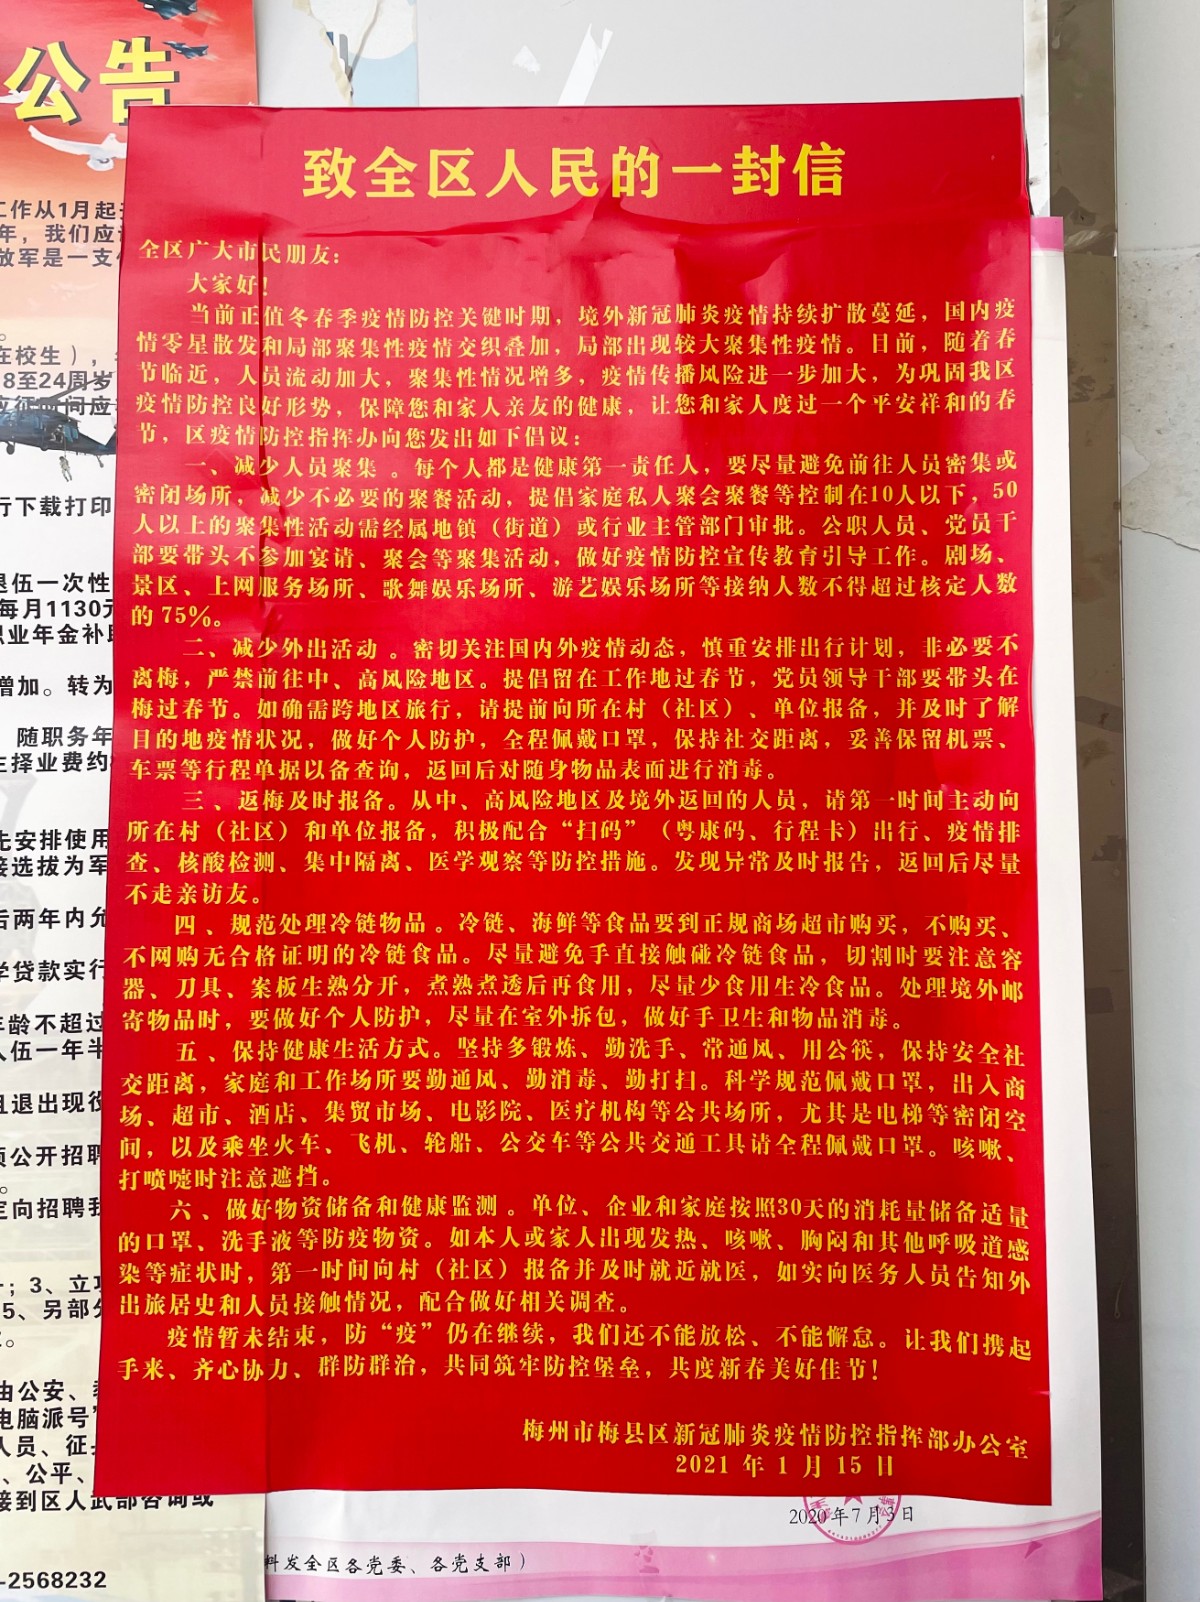 公告
致全区人民的一封信
全区广大市民朋友：
大家好！
当前正值冬春季疫情防控关键时期，境外新冠肺炎疫情持续扩散蔓延，国内疫
情零星散发和局部聚集性疫情交织叠加，局部出现较大聚集性疫情。目前，随着春
节临近，人员流动加大，聚集性情况增多，疫情传播风险进一步加大，为巩固我区
疫情防控良好形势，保障您和家人亲友的健康，让您和家人度过一个平安祥和的春
节，区疫情防控指挥办向您发出如下倡议：
一、减少人员聚集 。每个人都是健康第一责任人，要尽量避免前往人员密集或
密闭场所，减少不必要的聚餐活动，提倡家庭私人聚会聚餐等控制在10人以下，50
人以上的聚集性活动需经属地镇（街道）或行业主管部门审批。公职人员、党员干
部要带头不参加宴请、聚会等聚集活动，做好疫情防控宣传教育引导工作。剧场、
景区、上网服务场所、歌舞娱乐场所、游艺娱乐场所等接纳人数不得超过核定人数
的 75%。
二、减少外出活动 。密切关注国内外疫情动态，慎重安排出行计划，非必要不
离梅，严禁前往中、高风险地区。提倡留在工作地过春节，党员领导干部要带头在
梅过春节。如确需跨地区旅行，请提前向所在村（社区）、单位报备，并及时了解
目的地疫情状况，做好个人防护，全程佩戴口罩，保持社交距离，妥善保留机票、
车票等行程单据以备查询，返回后对随身物品表面进行消毒。
三 、返梅及时报备。从中、高风险地区及境外返回的人员，请第一时间主动向
所在村（社区）和单位报备，积极配合“扫码”（粤康码、行程卡）出行、疫情排
查、核酸检测、集中隔离、医学观察等防控措施。发现异常及时报告，返回后尽量
不走亲访友。
四 、规范处理冷链物品 。冷链、海鲜等食品要到正规商场超市购买，不购买、
不网购无合格证明的冷链食品。尽量避免手直接触碰冷链食品，切割时要注意容
器、刀具、案板生熟分开，煮熟煮透后再食用，尽量少食用生冷食品。处理境外邮
寄物品时，要做好个人防护，尽量在室外拆包，做好手卫生和物品消毒。
五 、保持健康生活方式。坚持多锻炼、勤洗手、常通风、用公筷，保持安全社
交距离，家庭和工作场所要勤通风、勤消毒、勤打扫。科学规范佩戴口罩，出入商
场、超市、酒店、集贸市场、电影院、医疗机构等公共场所，尤其是电梯等密闭空
间，以及乘坐火车、飞机、轮船、公交车等公共交通工具请全程佩戴口罩。咳嗽、
打喷嚏时注意遮挡。
六 、做好物资储备和健康监测 。单位、企业和家庭按照30天的消耗量储备适量
的口罩、洗手液等防疫物资。如本人或家人出现发热、咳嗽、胸闷和其他呼吸道感
染等症状时，第一时间向村（社区）报备并及时就近就医，如实向医务人员告知外
出旅居史和人员接触情况，配合做好相关调查。
疫情暂未结束，防“疫”仍在继续，我们还不能放松、不能懈怠。让我们携起
手来、齐心协力、群防群治，共同筑牢防控堡垒，共度新春美好佳节！
梅州市梅县区新冠肺炎疫情防控指挥部办公室
2021 年 1 月 15 日
工作从1月起
年，我们应
放军是一支
在校生），
8至24周岁
应征
行下载打印
退伍一次性
每月1130元
职业年金补
增加。转为
随职务年
主择业费约
先安排使用
接选拔为军
后两年内允
学贷款实行
年龄不超过
入伍一年半
且退出现役
项公开招聘
定向招聘
；3、立
5、另部分
由公安、
电脑派号”
人员、征
、公平、
接到区人武部咨询或
-2568232
2020年7月3日
料发全区各党委、各党支部）